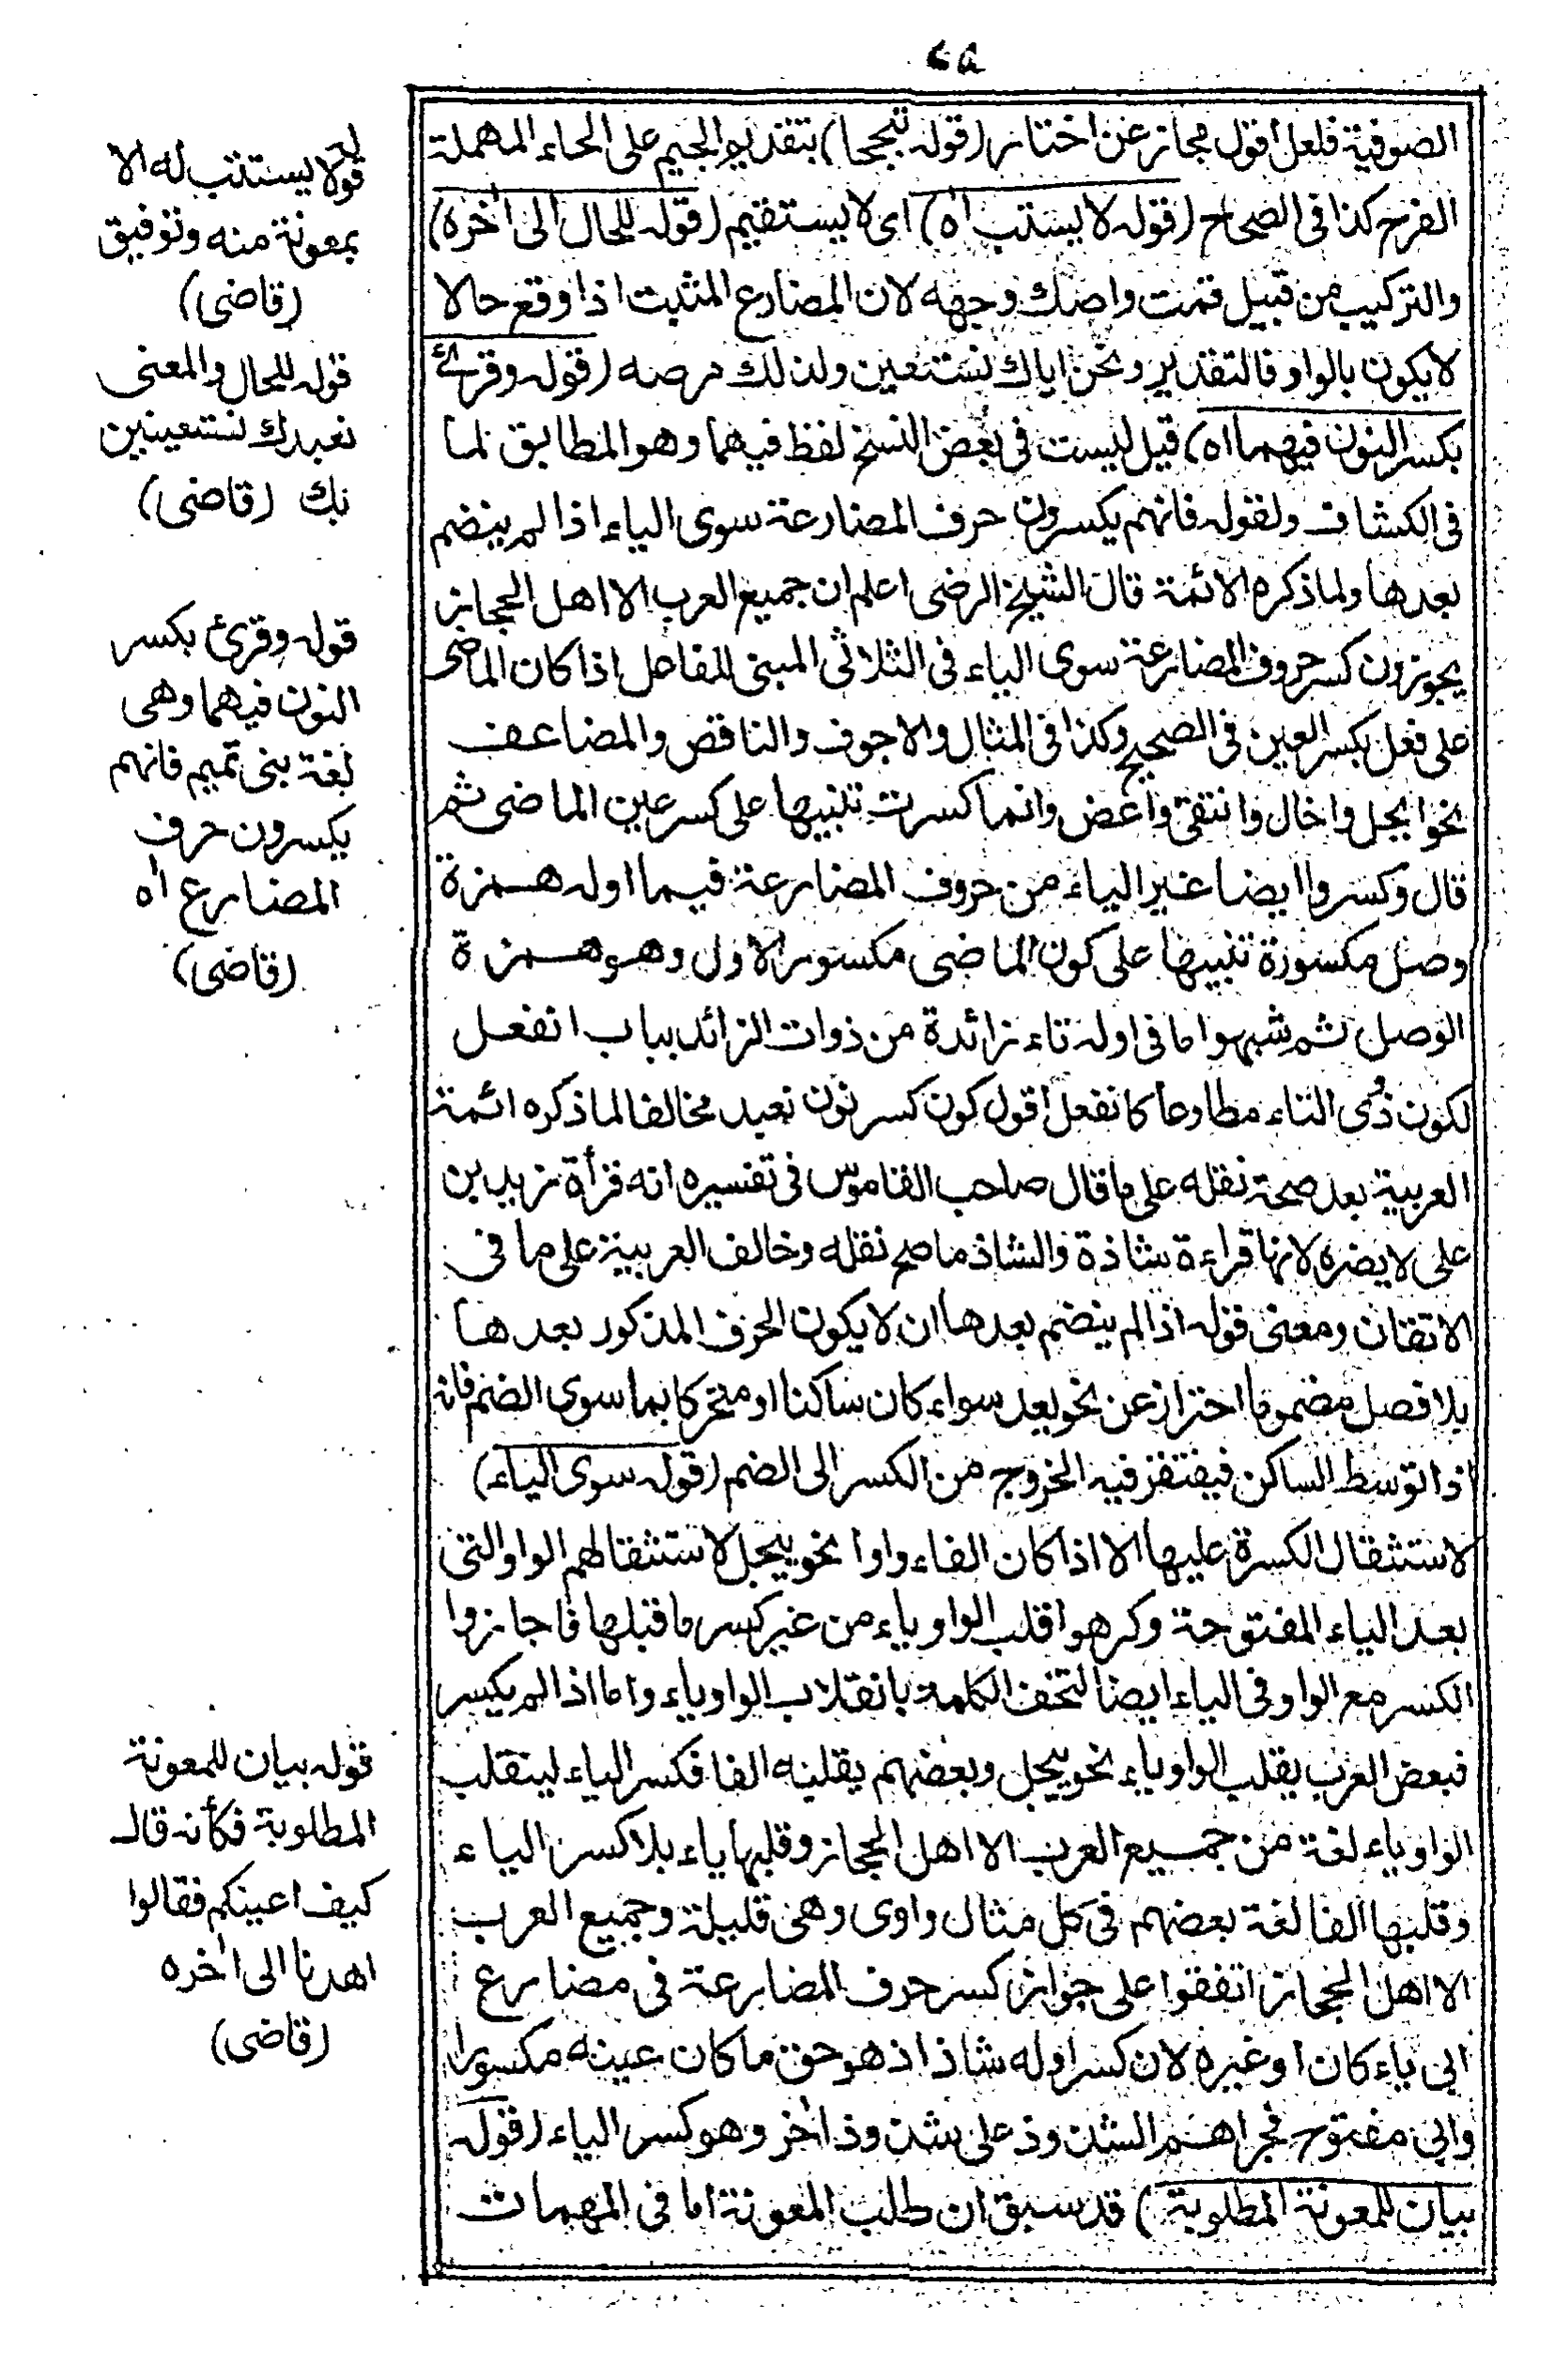 الصوفية فلعل أقول مجاز عن اختار (قوله تبجحا) بتقديم الجيم على الحاء المهملة
الفرح كذا فى الصحاح (قوله لا يستتب اه) اى لا يستقيم (قوله للحال الى اخره)
والتركيب من قبيل قمت واصك وجهه لان المضارع المثبت اذا وقع حالا
لا يكون بالواو فالتقدير ونحن اياك نستعين ولذلك مرضه (قوله وقرئ
بكسر النون فيهما اه) قيل ليست فى بعض النسخ لفظ فيهما وهو المطابق لما
فى الكشاف ولقوله فانهم يكسرون حرف المضارعة سوى الياء اذا لم ينضم
بعدها ولما ذكره الائمة قال الشيخ الرضى اعلم ان جميع العرب الا اهل الحجاز
يجوزون كسر حروف المضارعة سوى الياء فى الثلاثى المبنى للفاعل اذا كان الماضى
على فعل بكسر العين فى الصحيح وكذا فى المثال والاجوف والناقص والمضاعف
نحو ايجل واخال وانتقى واعض وانما كسرت تنبيها على كسر عين الماضى ثم
قال وكسروا ايضا غير الياء من حروف المضارعة فيما اوله همزة
وصل مكسورة تنبيها على كون الماضى مكسور الاول وهو همزة
الوصل ثم شبهوا ما فى اوله تاء زائدة من ذوات الزائد بباب انفعل
لكون ذى التاء مطاوعا كانفعل أقول كون كسر نون نعبد مخالفا لما ذكره ائمة
العربية بعد صحة نقله على ما قال صاحب القاموس فى تفسيره انه قرأة زيد بن
على لا يضره لانها قراءة شاذة والشاذ ما صح نقله وخالف العربية على ما فى
الاتقان ومعنى قوله اذا لم ينضم بعدها ان لا يكون الحرف المذكور بعدها
بلا فصل مضموما احتراز عن نحو يعد سواء كان ساكنا او متحركا بما سوى الضم فانه
اذا توسط الساكن فيفتقر فيه الخروج من الكسر الى الضم (قوله سوى الياء)
لاستثقال الكسرة عليها الا اذا كان الفاء واوا نحو ييجل لاستثقالهم الواو التى
بعد الياء المفتوحة وكرهوا قلب الواو ياء من غير كسر ما قبلها فاجازوا
الكسر مع الواو فى الياء ايضا لتخف الكلمة بانقلاب الواو ياء واما اذا لم يكسر
فبعض العرب يقلب الواو ياء نحو ييجل وبعضهم يقلبه الفا فكسر الياء لينقلب
الواو ياء لغة من جميع العرب الا اهل الحجاز وقلبها ياء بلا كسر الياء
وقلبها الفا لغة بعضهم فى كل مثال واوى وهى قليلة وجميع العرب
الا اهل الحجاز اتفقوا على جواز كسر حرف المضارعة فى مضارع
ابى ياء كان او غيره لان كسر اوله شاذ اذ هو حق ما كان عينه مكسورا
وابى مفتوح فجراهم الشذوذ على شذوذ اخر وهو كسر الياء (قوله
بيان للمعونة المطلوبة) قد سبق ان طلب المعونة اما فى المهمات
قوله لا يستتب له الا
بمعونة منه وتوفيق
(قاضى)
قوله للحال والمعنى
نعبدك نستعينين
بك (قاضى)
قوله وقرئ بكسر
النون فيهما وهى
لغة بنى تميم فانهم
يكسرون حرف
المضارع اه
(قاضى)
قوله بيان للمعونة
المطلوبة فكأنه قال
كيف اعينكم فقالوا
اهدنا الى اخره
(قاضى)